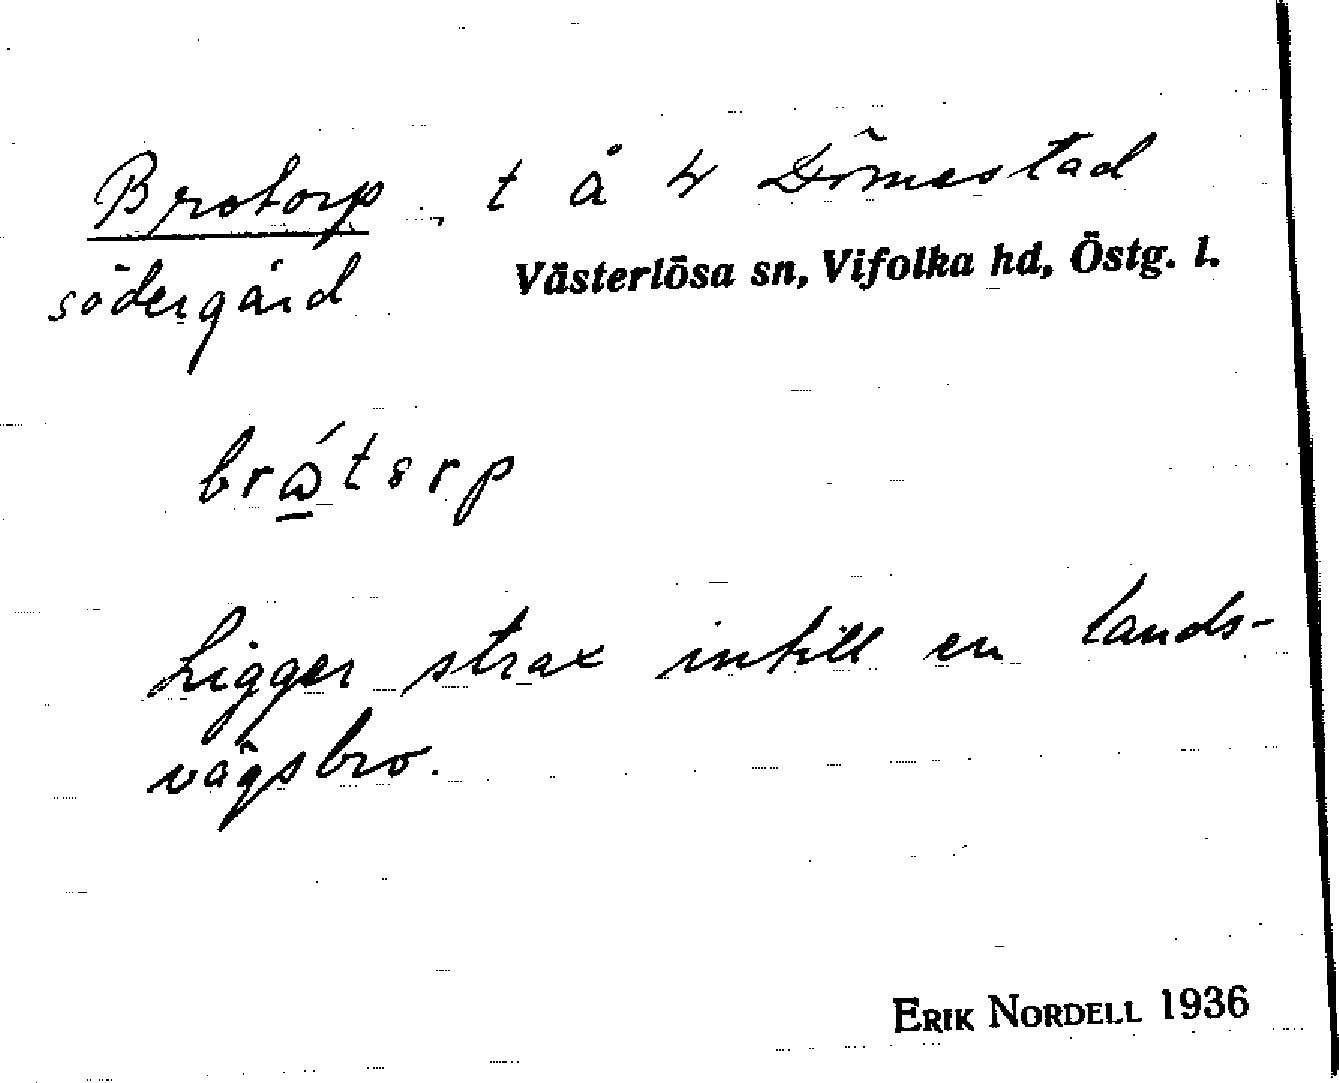 Brotorp, t å 4 Dömestad
södergård
Västerlösa sn, Vifolka hd, Östg. l.
brώ̲tɵrp
Ligger strax intill en lands-
vägsbro.
ERIK NORDELL 1936